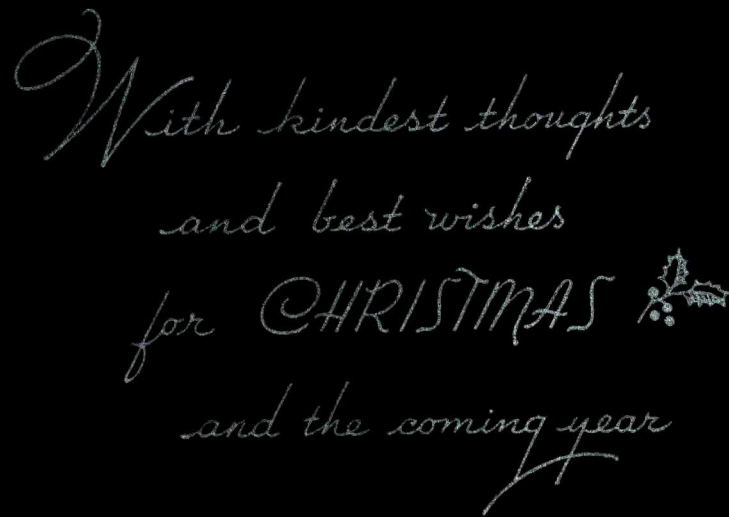 With kindest thoughts
and best wishes
for CHRISTMAS
and the coming year